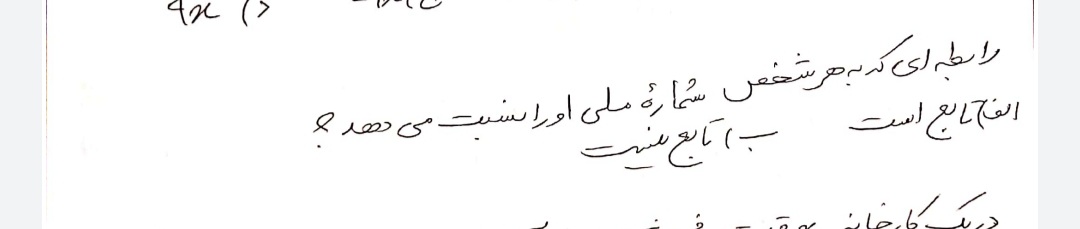 4x (د
رابطه ای که به هر شخص شمارهٔ ملی او را نسبت می دهد ؟
الف) تابع است ب) تابع نیست
در یک کارخانه